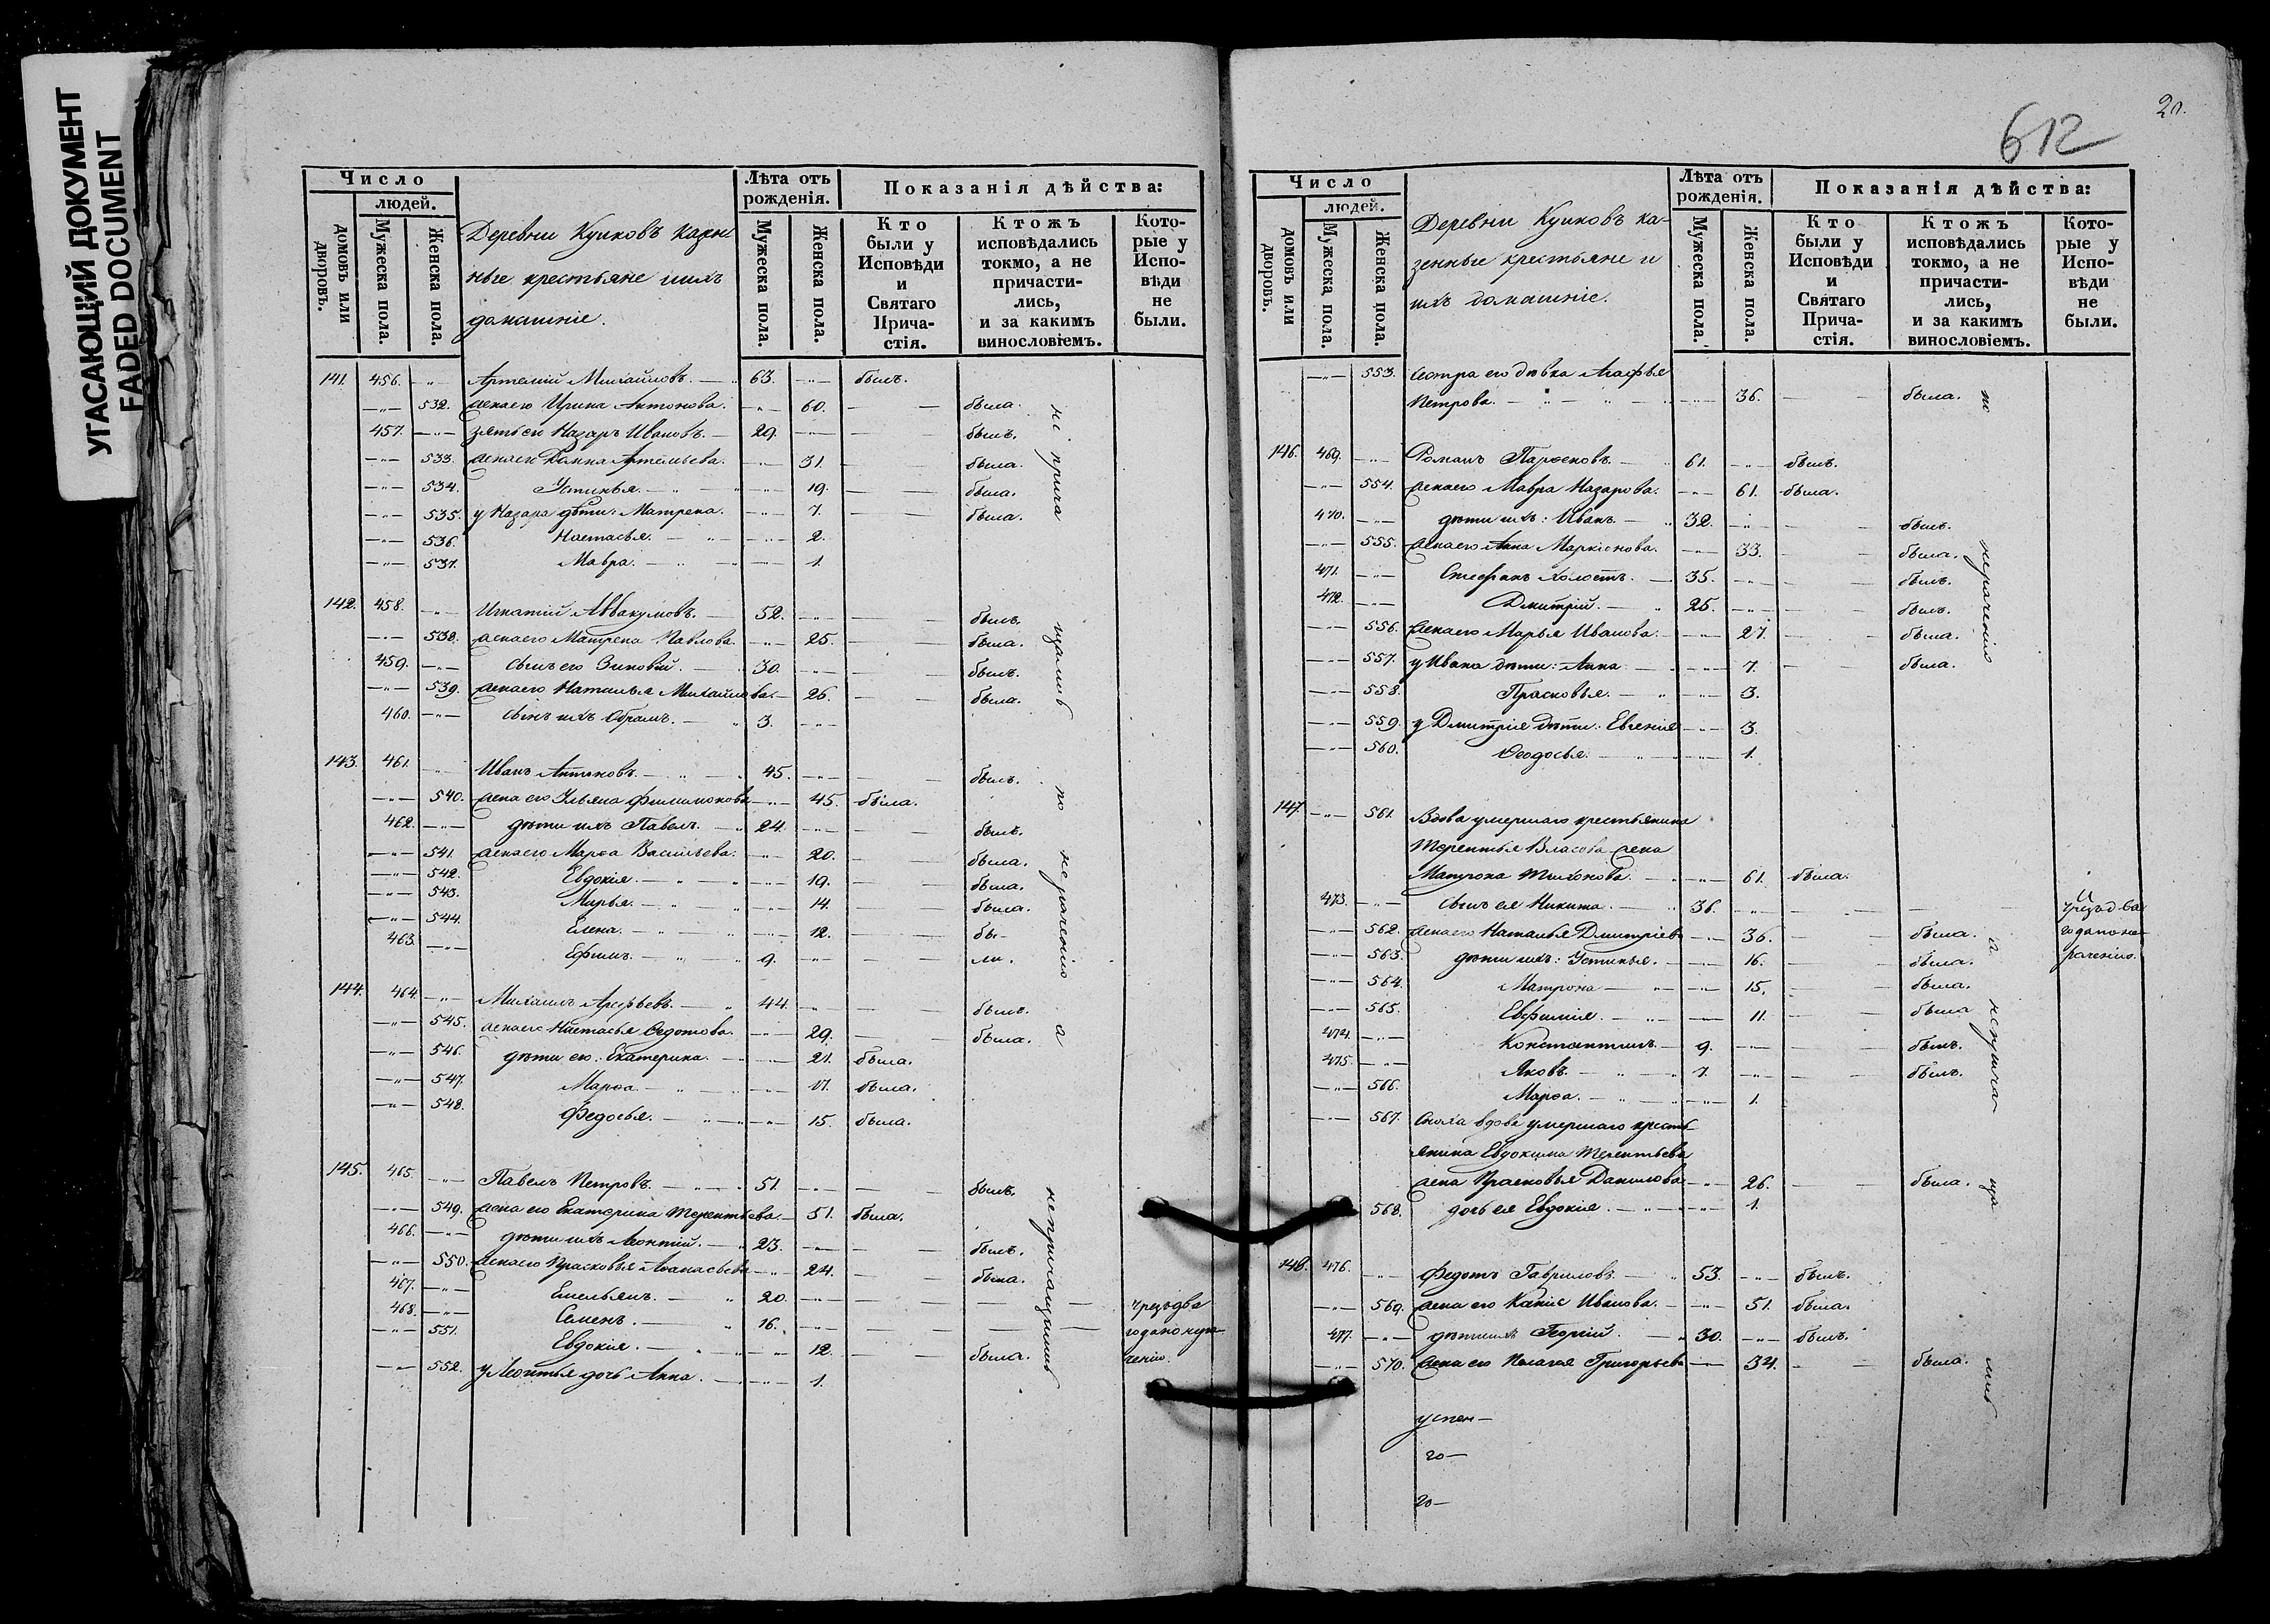 УГАСАЮЩИЙ ДОКУМЕНТ
FADED DOCUMENT
Число
людей.
домовъ или дворовъ.
Мужеска пола.
Женска пола.
Деревни Куиковъ казен
ные крестьяне и ихъ
домашніе.
Лѣта отъ рожденія.
Мужеска пола.
Женска пола.
Показанія дѣйства:
Кто были у Исповѣди и Святаго Прича-стія.
Ктожъ исповѣдались токмо, а не причасти-лись, и за какимъ винословіемъ.
Кото-рые у Испо-вѣди не были.
141. 456. —"— Артемій Михайловъ. — 63. —"— былъ.
—"— 532. жена его Ирина Антонова. —"— 60. — — была.
457. —"— зять ей Назаръ Ивановъ. — 29. —"— — былъ.
—"— 533. жена его Домна Артемьева. —"— 31. — — была.
—"— 534. Устинья. — " — —"— 19. — — была.
—"— 535. у Назара дѣти: Матрена. —"— 7. — — была.
—"— 536. Настасья. — " — —"— 2.
—"— 537. Мавра. — " — —"— 1.
142. 458. —"— Игнатій Аввакумовъ. — 52. —"— — — былъ.
—"— 538. жена его Матрена Павлова. —"— 25. — — была.
459. —"— сынъ его Зиновій. — 30. —"— — — былъ.
—"— 539. жена его Наталья Михайлова. — 26. — — была.
460. —"— сынъ ихъ Абрамъ. — " 3. —"—
143. 461. —"— Иванъ Антоновъ. — " — 45. —"— — — былъ.
—"— 540. жена его Ульяна Филимонова —"— 45. была.
462. —"— дѣти ихъ Павелъ. — " 24. —"— — — былъ.
—"— 541. жена его Марѳа Васильева. —"— 20. — — была.
—"— 542. Евдокія. — " — —"— 19. — — была.
—"— 543. Марья. — " — —"— 14. — — была.
—"— 544. Елена. — " — —"— 12. — — бы-
463. —"— Ефимъ. — " — 9. —"— — — ли.
144. 464. —"— Михаилъ Арефьевъ. — " 44. —"— — — былъ.
—"— 545. жена его Настасья Ѳедотова. —"— 29. — — была.
—"— 546. дѣти его: Екатерина. — —"— 21. была.
—"— 547. Марѳа. — " — —"— 17. была.
—"— 548. Федосья. — " — —"— 15. была.
145. 465. —"— Павелъ Петровъ. — " — 51. —"— — — былъ.
—"— 549. жена его Екатерина Терентьева. — 51. была.
466. —"— дѣти ихъ Леонтій. — " 23. —"— — — былъ.
—"— 550. жена его Прасковья Аѳанасьева —"— 24. — — была.
467. —"— Емельянъ. — " 20. —"— — — — — чрезъ два
468. —"— Семенъ. — " 16. —"— — — — — года по нера-
—"— 551. Евдокія. — " —"— 12. — — была. ченію.
—"— 552. у Леонтья дочь Анна. — —"— 1.
не причащались по нераченію а не причащались
20.
612
Число
людей.
домовъ или дворовъ.
Мужеска пола.
Женска пола.
Деревни Куиковъ ка-
зенные крестьяне и
ихъ домашніе.
Лѣта отъ рожденія.
Мужеска пола.
Женска пола.
Показанія дѣйства:
Кто были у Исповѣди и Святаго Прича-стія.
Ктожъ исповѣдались токмо, а не причасти-лись, и за какимъ винословіемъ.
Кото-рые у Испо-вѣди не были.
—"— 553. Сестра его дѣвка Агафья
Петрова. — " — " — —"— 36. — — была.
146. 469. —"— Романъ Парѳеновъ. — " 61. —"— былъ.
—"— 554. жена его Мавра Назарова. —"— 61. была.
470. —"— дѣти ихъ: Иванъ. — " 32. —"— — былъ.
—"— 555. жена его Анна Маркіонова. —"— 33. — — была.
471. —"— Стефанъ холостъ. — 35. —"— — былъ.
472. —"— Дмитрій. — " 25. —"— — былъ.
—"— 556. жена его Марья Иванова. —"— 27. — — была.
—"— 557. у Ивана дѣти: Анна. — —"— 7. — — была.
—"— 558. Прасковья. — " —"— 3.
—"— 559. у Дмитрія дѣти: Евгенія —"— 3.
—"— 560. Ѳеодосья. — " —"— 1.
147. —"— 561. Вдова умершаго крестьянина
Терентья Власова жена
Матрона Тихонова. — —"— 61. была.
473. —"— сынъ ея Никита. — " 36. —"— — — — чрезъ два
—"— 562. жена его Наталья Дмитріева —"— 36. — — была. года по не-
—"— 563. дѣти ихъ: Устинья. — —"— 16. — — была. раченію.
—"— 564. Матрона — " —"— 15. — — была.
—"— 565. Евфимія. — " —"— 11. — — была
474. —"— Константинъ. — 9. —"— — — былъ.
475. —"— Яковъ. — " 7. —"— — — былъ.
—"— 566. Марѳа. — " —"— 1.
—"— 567. Сноха вдова умершаго кресть-
янина Евдокима Терентьева
жена Прасковья Данилова —"— 26. — — была.
568. дочь ея Евдокія. — " —"— 1.
148. 476. —"— Федотъ Гавриловъ. — " 53. —"— былъ.
—"— 569. жена его Иванова. — —"— 51. была.
477. —"— дѣти ихъ Георгій. — " 30. —"— былъ.
—"— 570. жена его Пелагея Григорьева —"— 34. — — была.
по нераченію а не прича ща лись
успен—
го—
го—